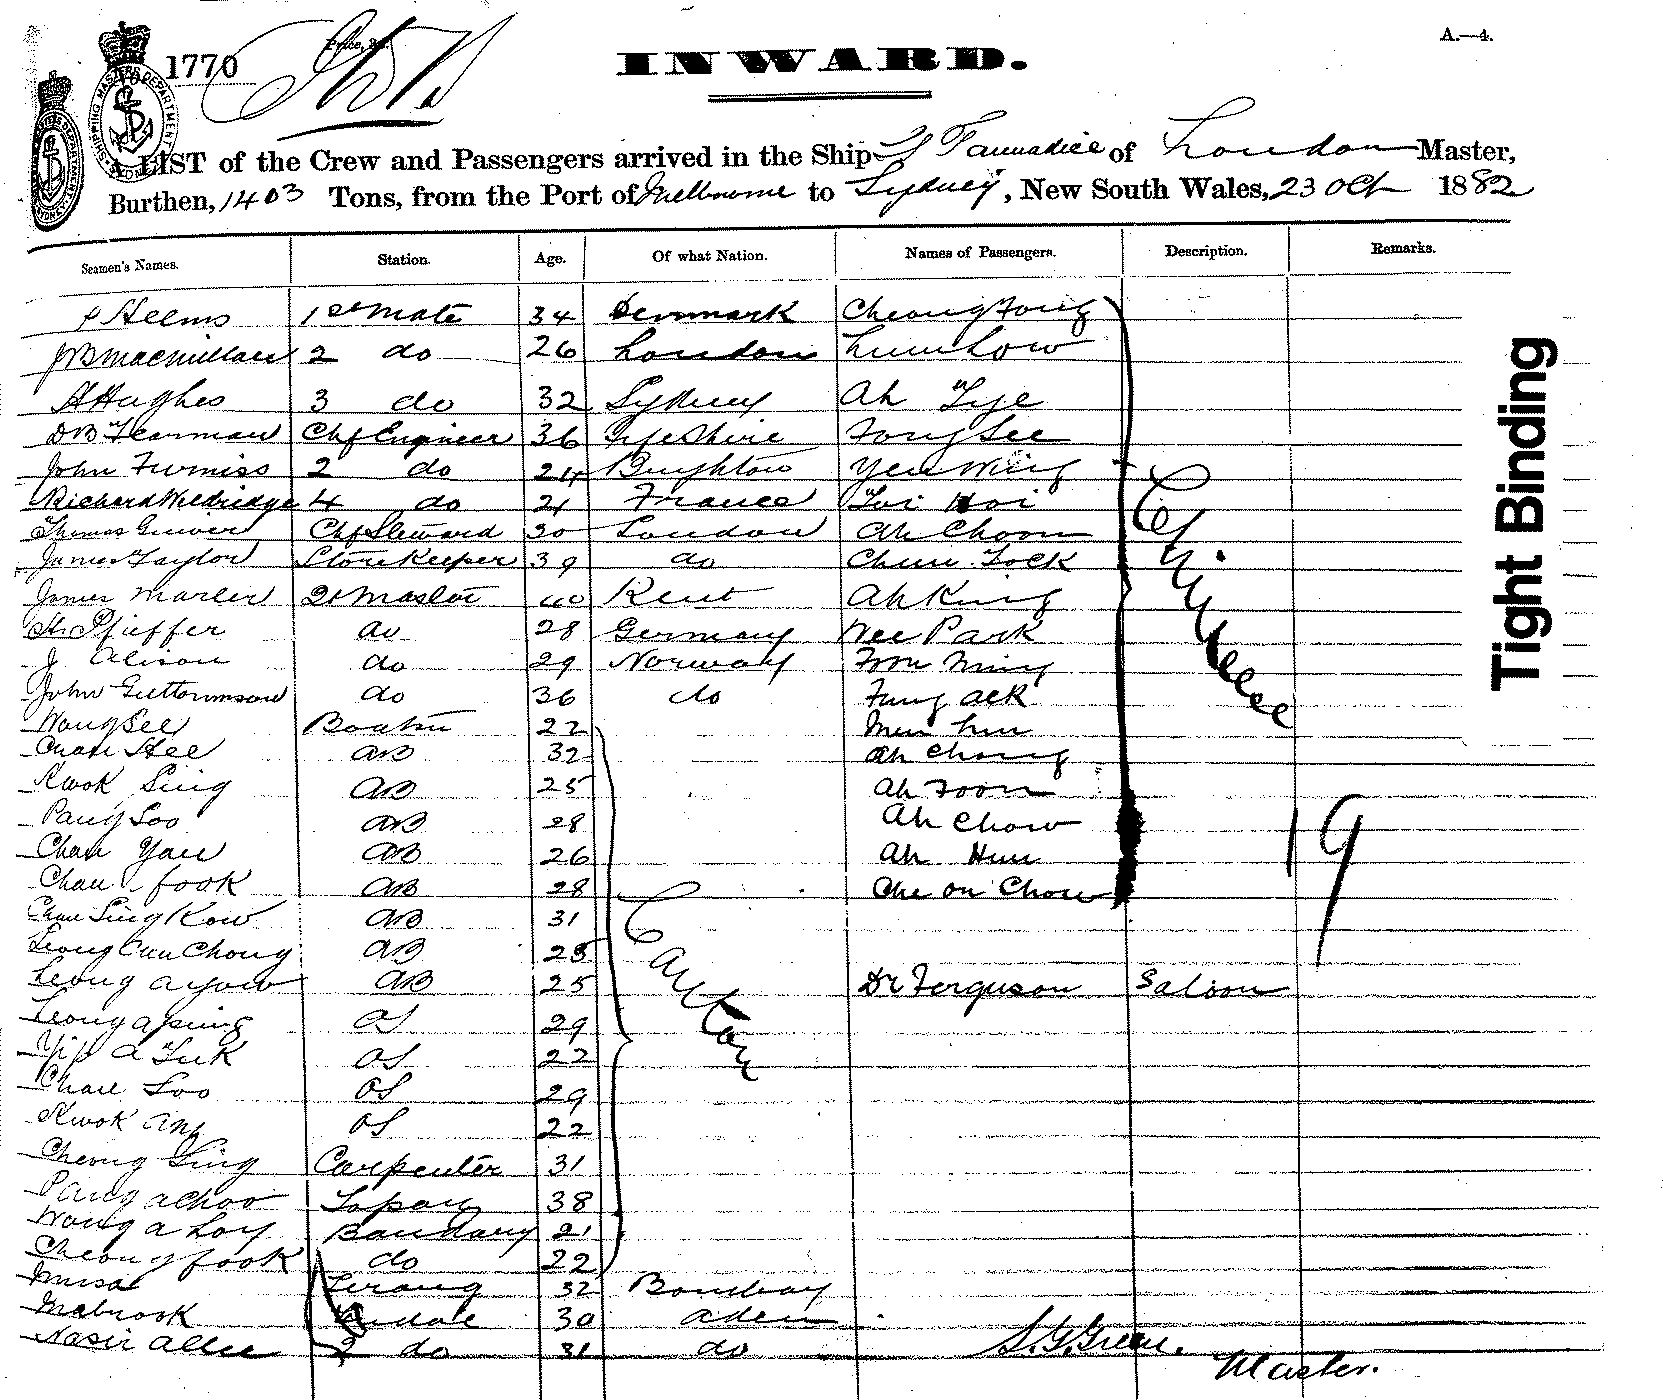 A.—4.
1770
INWARD.
A LIST of the Crew and Passengers arrived in the Ship Tannadice of London Master,
Burthen, 1403 Tons, from the Port of Melbourne to Sydney, New South Wales, 23 Oct 1882
Seamen's Names. Station. Age. Of what Nation. Names of Passengers. Description. Remarks.
P Helms 1st Mate 34 Denmark Cheong Fong
J B Macmillan 2 do 26 London Lum Low
A Hughes 3 do 32 Sydney Ah Tye
D B Fearman Chf Engineer 36 Fifeshire Fong See
John Furniss 2 do 24 Brighton Yen Wing
Richard Weldridge 4 do 21 France Loi Hoi
Thomas Gruver Chf Steward 30 London Ah Choon
James Taylor Storekeeper 39 do Chun Fock
James Marler Qr Master 40 Kent Ah King
H. Pfieffer do 28 Germany Wee Park
J Alison do 29 Norway Foon Ming
John Guttormson do 36 do Fung Ack
Wong See Boatsn 22 Mun Lun
Chan Hee AB 32 Ah Chong
Kwok Sing AB 25 Ah Foon
Pang Soo AB 28 Ah Chow
Chan Yau AB 26 Ah Hun
Chan fook AB 28 Che on Chow
Chinese
19
Chan Sing Kow AB 31
Leong Cun Chong AB 25
Leong ayow AB 25 Dr Ferguson Saloon
Leong a ping OS 29
Canton
Yip a Tuk OS 22
Chan Soo OS 29
Kwok an OS 22
Cheong Sing Carpenter 31
Pang achoo Lapan 38
Wong a Loy Bandary 21
Cheong fook do 22
Musa Serang 32 Bombay
Mabrook Tindal 30 Aden
Nasir Allee 2 do 31 do
S. G. Green.
Master.
Tight Binding